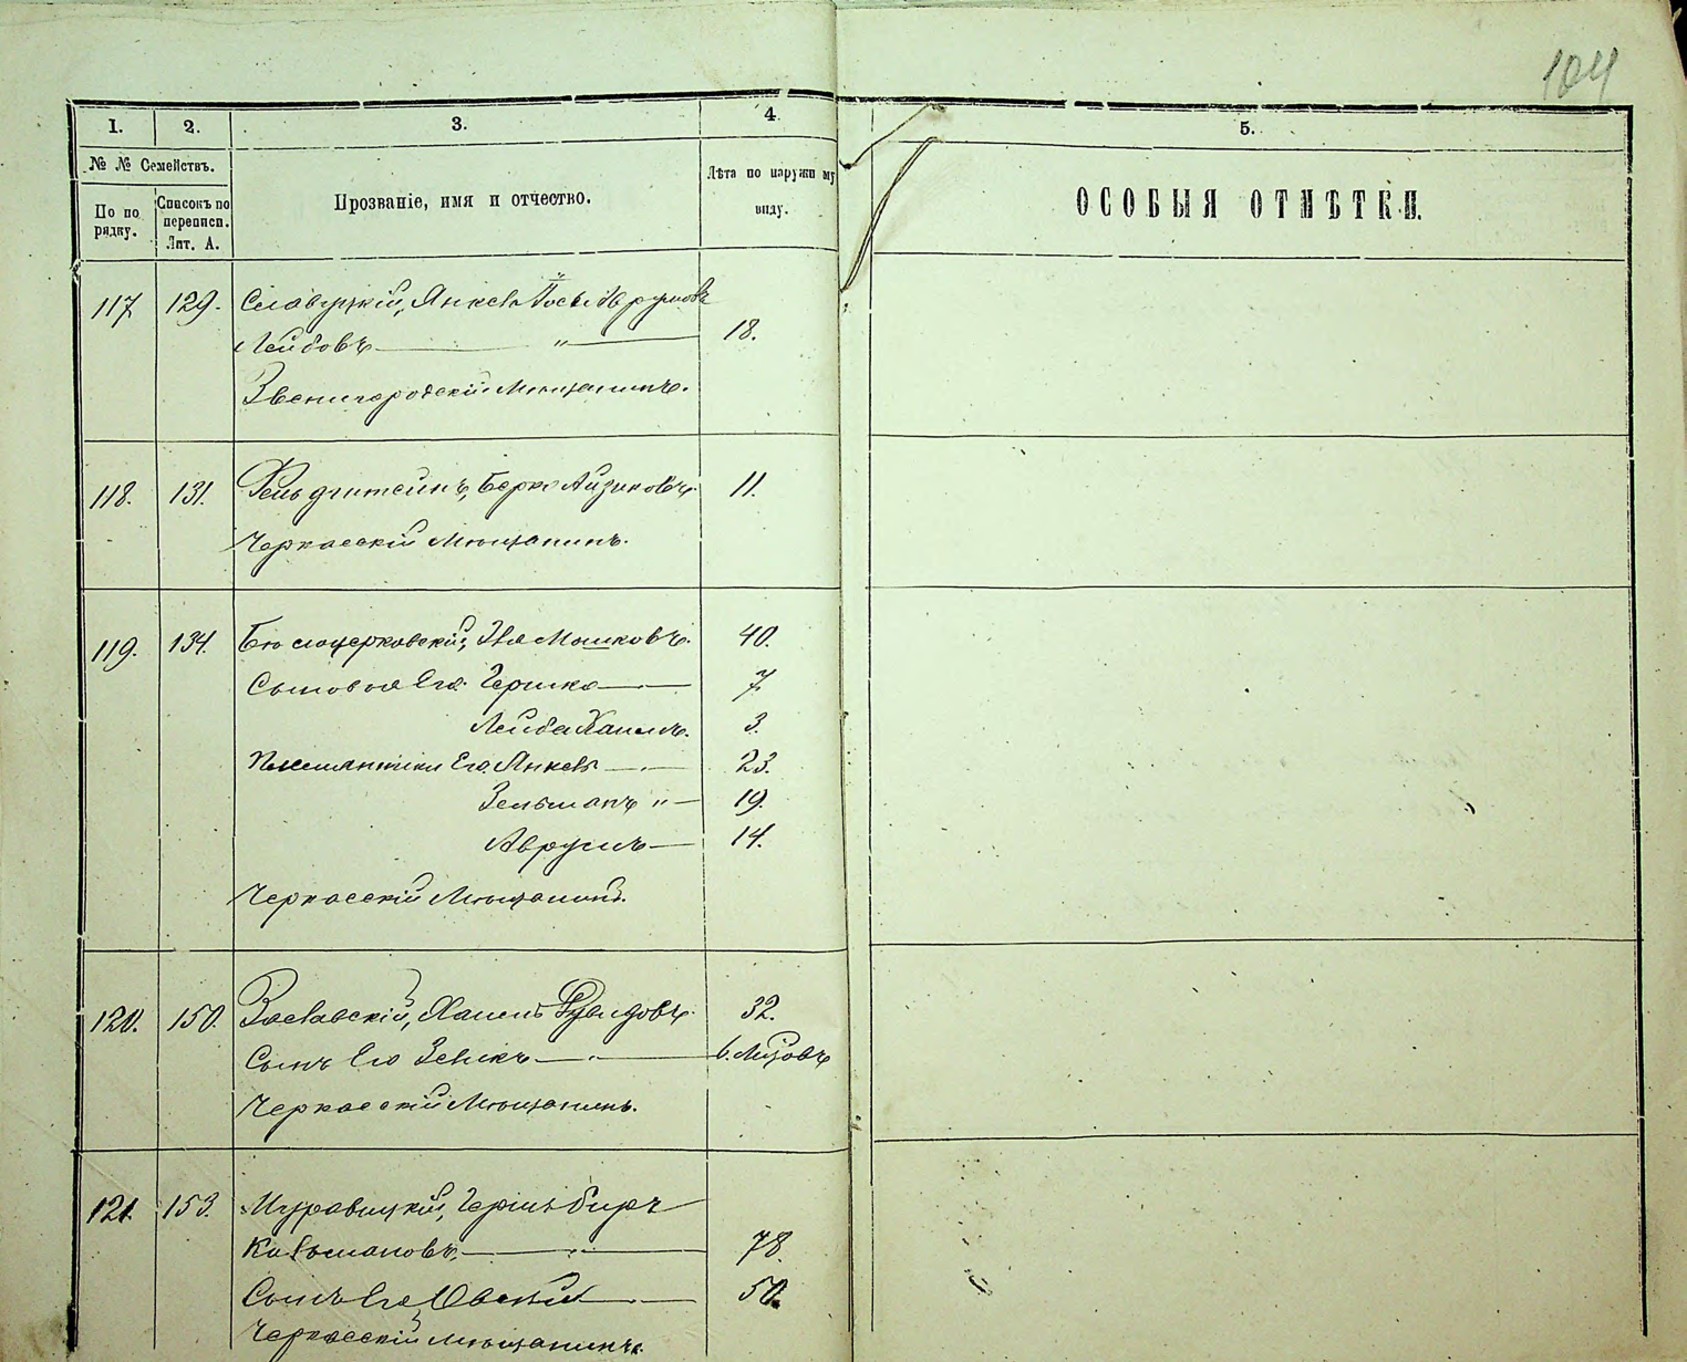 104
1. 2. 3. 4. 5.
№ № Семействъ.
По по рядку.
Списокъ по переписи. Лит. А.
Прозваніе, имя и отчество.
Лѣта по наружн му виду.
ОСОБЫЯ ОТМѢТКИ.
117 129. Славуцкій, Янкель Іось Аврумовъ
Лейбовъ — " — 18.
Звенигородскій Мѣщанинъ.
118. 131. Фельдштейнъ, Берко Айзиковъ. 11.
Черкасскій Мѣщанинъ.
119. 134. Бѣлоцерковскій, Мошковъ. 40.
Сыновья Его. Гершко — 7.
Лейба Хаимъ. 3.
Племянники Его. Янкель — 23.
Зельманъ " — 19.
Аврумъ — 14.
Черкасскій Мѣщанинъ.
120. 150. Заславскій, Хаимъ Дувидовъ. 32.
Сынъ Его Зейликъ — 6. Мѣсяцовъ
Черкасскій Мѣщанинъ.
121. 153. Муравицкій, Гершъ Биръ
Кальмановъ. — 78.
Сынъ Его, Овсей — 50.
Черкасскій Мѣщанинъ.